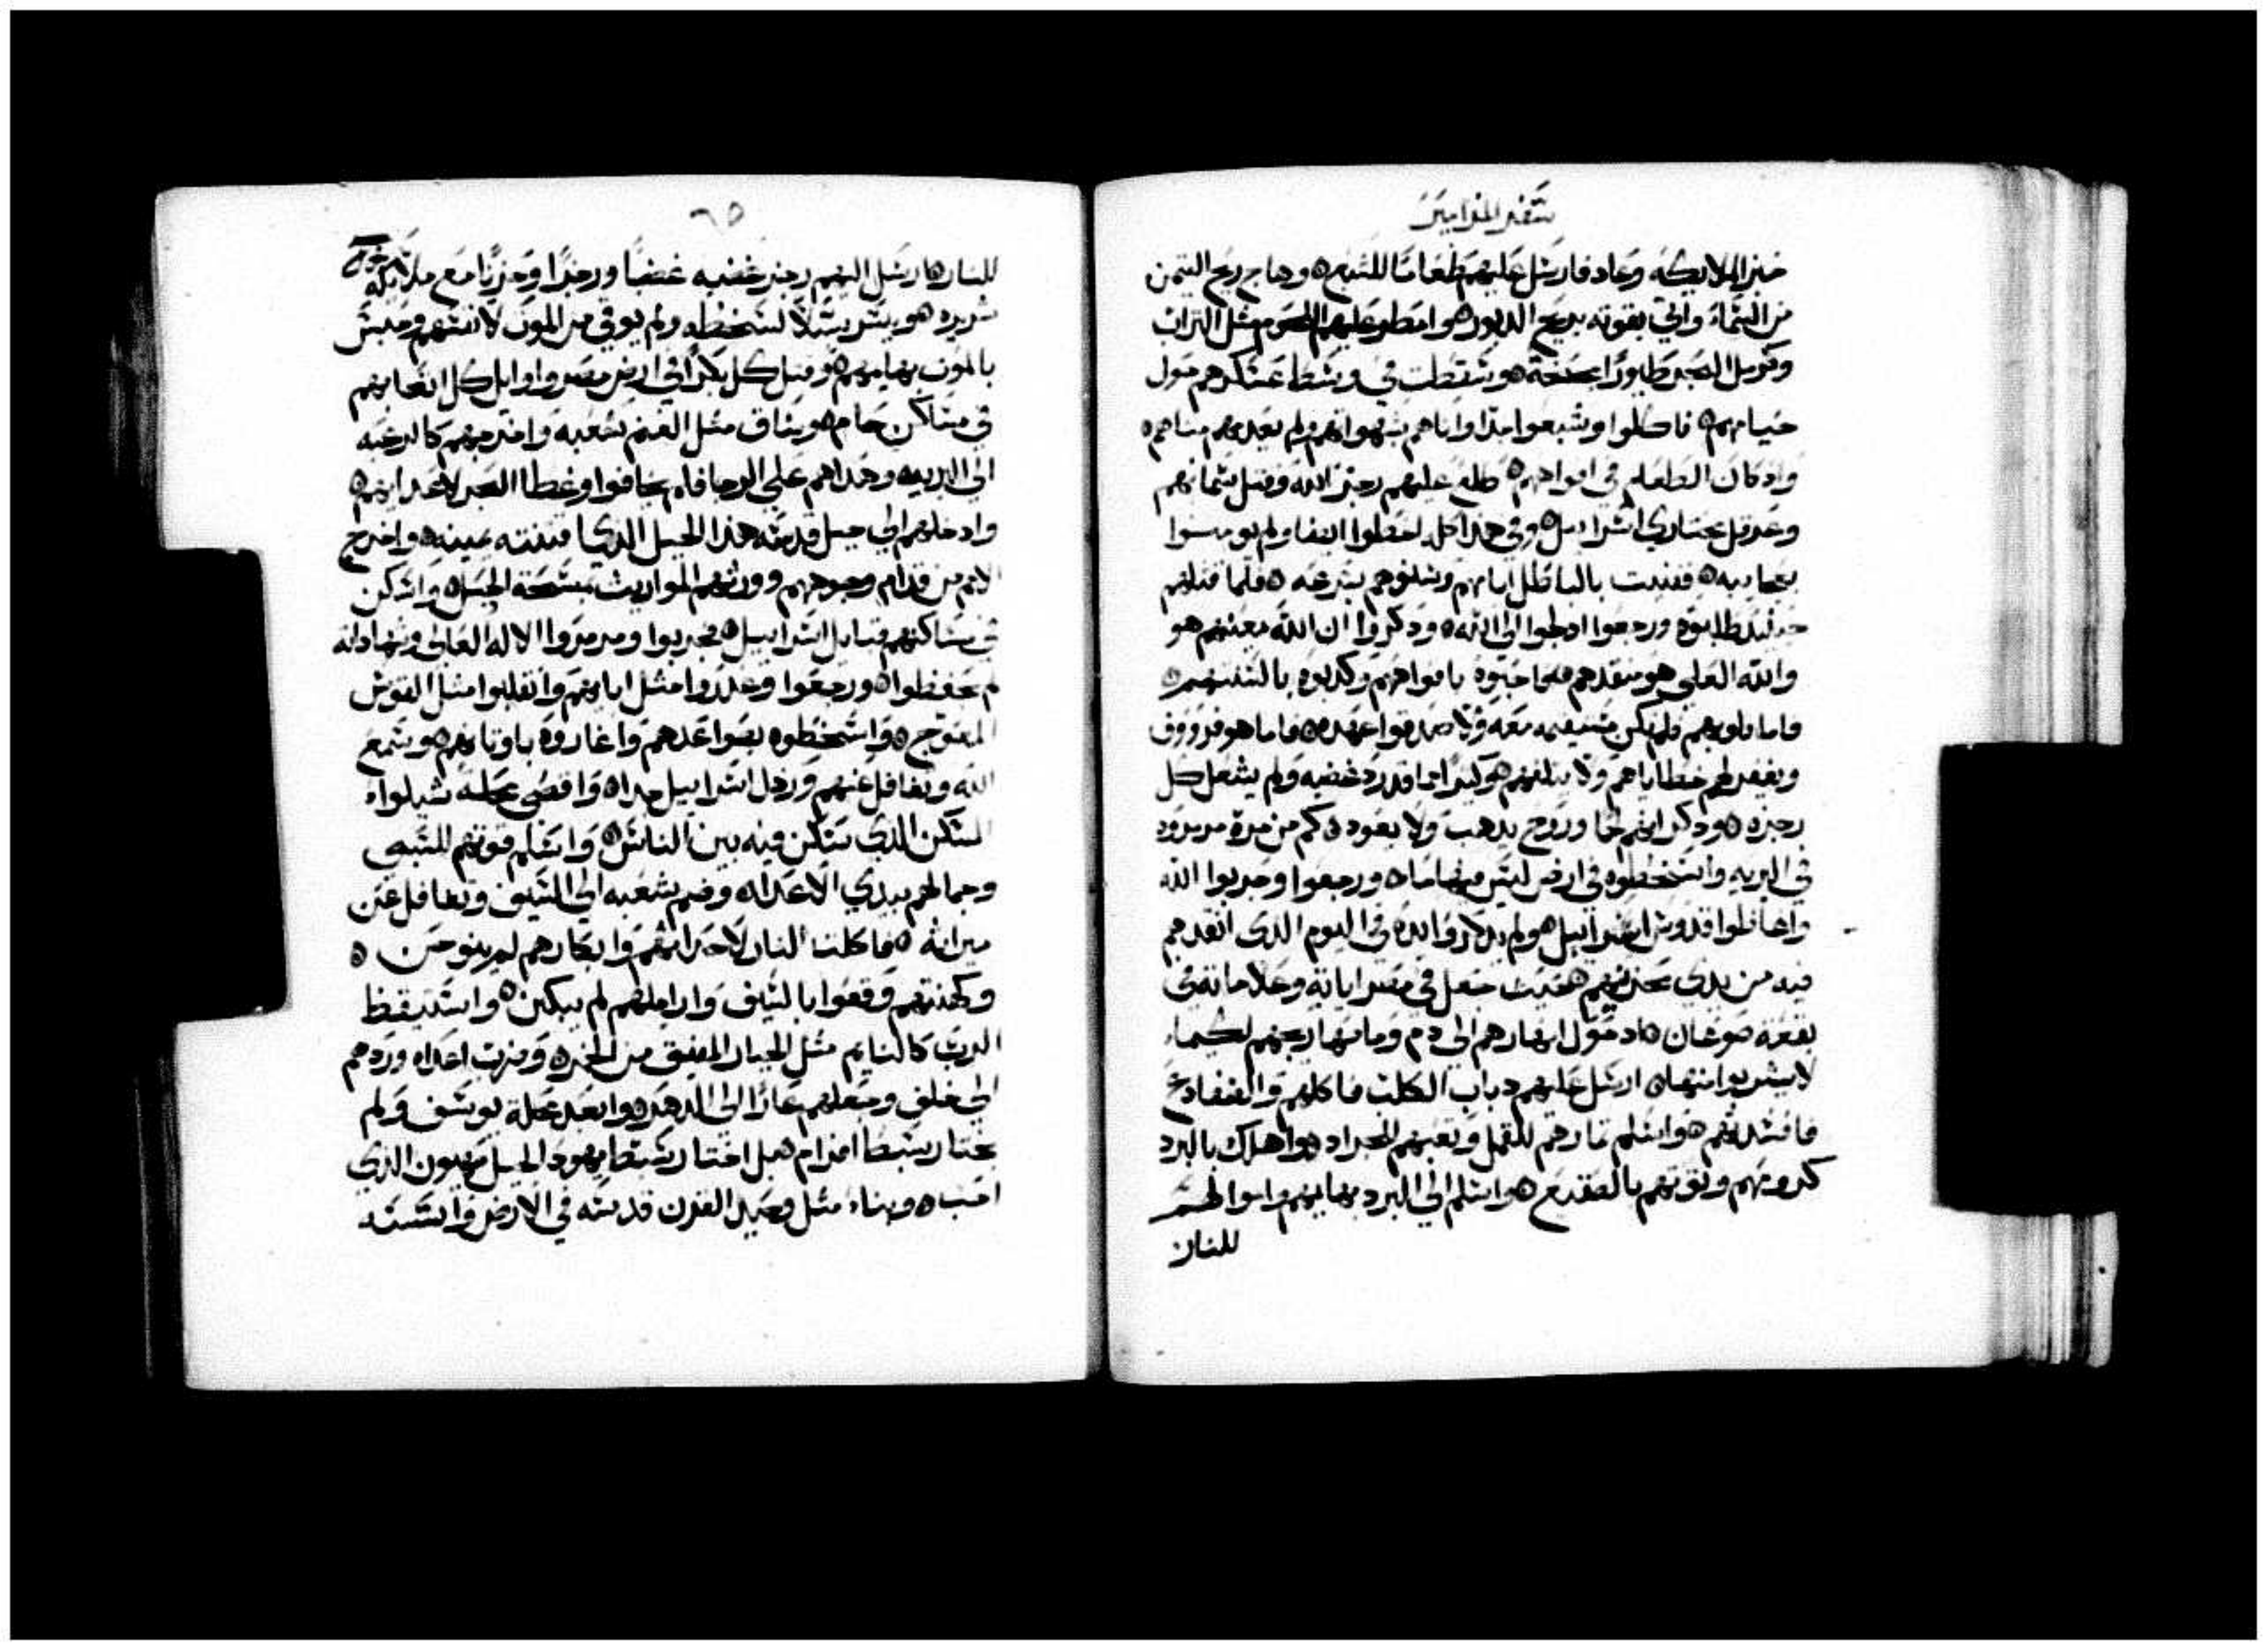 سفر المزامير
خبز الملايكه وعاد فارسل عليهم طعامًا للشبع ه وهاج ريح التيمن
من السماء واتي بقوته بريح الدبور ه وامطر عليهم اللحوم مثل التراب
وكرمل البحر طيورًا بجنحة ه وسقطت في وسط عسكرهم حول
خيامهم ه فاكلوا وشبعوا جدًا واتاهم بشهواتهم ولم يعدمهم مناهم ه
واد كان الطعام في افواههم ه طلع عليهم رجز الله وقتل سمانهم
وعرقل مختاري اسراييل ه وفي هذا كله اخطوا ايضا ولم يومنوا
بعجايبه ه ففنيت بالباطل ايامهم وسنوهم بسرعه ه فلما قتلهم
حينيد طلبوه ورجعوا ادلجوا الي الله ه ودكروا ان الله معينهم هو
والله العلي هو منقدهم ه فاحبوه بافواههم وكدبوه بالسنتهم ه
فاما قلوبهم فلم تكن مستقيمه معه ولا صدقوا عهده ه فاما هو فرووف
ويغفر لهم خطاياهم ولا يتلفهم ه وكثيرًا ما قد رد غضبه ولم يشعل كل
رجزه ه ودكر انهم لحما وروح يدهب ولا يعود ه كم من مرة مرمروه
في البريه واسخطوه في ارض ليس فيها ما ه ورجعوا وجربوا الله
واغاظوا قدوس اسراييل ه ولم يدكروا يده في اليوم الدي انقدهم
فيه من يدي محزنهم ه حيث جعل في مصر اياته وعلاماته في
بقعة صوعان ه اد حول انهارهم الي دم ومامهاريجهم لكيما
لا يشربوا منها ه ارسل عليهم دباب الكلب فاكلهم والضفادع
فافسدتهم ه واسلم ثمارهم للقمل وتعبهم للجراد ه واهلك بالبرد
كرومهم وتوتهم بالصقيع ه واسلم الي البرد بهايمهم واموالهم
للنار
٦٥
للنار ه ارسل اليهم رجز غضبه غضبًا ورجزًا وحزنًا مع ملايكه
شريره ه ويسر سبيلًا لسخطه ولم يوقي من الموت لانفسهم وحبس
بالموت بهايمهم ه وقتل كل بكرًا في ارض مصر واوايل كل اتعابهم
في مساكن حام ه وساق مثل الغنم شعبه واخرجهم كالرعيه
الي البريه ه وهداهم علي الرجا فلم يخافوا وغطا البحر لاعدايهم ه
وادخلهم الي جبل قدسه هذا الجبل الدي اقتنته يمينه ه واخرج
الامم من قدام وجوههم وورثهم المواريث بمسحة الحبل ه واسكن
في مساكنهم قبايل اسراييل ه فجربوا ومرمروا الاله العالي وشهاداته
لم يحفظوا ه ورجعوا وغدروا مثل ابايهم وانقلبوا مثل القوس
المعوج ه واسخطوه بصواعدهم واغاروه باوثانهم ه وسمع
الله وتغافل عنهم ورذل اسراييل جدا ه واقصي محلة شيلوا ه
المسكن الدي سكن فيه بين الناس ه واسلم قوتهم للسبي
وجمالهم بيدي الاعداء ه وضم شعبه الي السيف وتغافل عن
ميراثه ه فاكلت النار لاحداثهم وابكارهم لم ينوحن ه
وكهنتهم وقعوا بالسيف واراملهم لم يبكين ه واستيقظ
الرب كالنايم مثل الجبار المفيق من الخمر ه وضرب اعداه وردهم
الي خلف وجعلهم عارًا الي الدهر ه وابعد محلة يوسف ولم
يختار سبط افرام ه بل اختار سبط يهودا الجبل صهيون الدي
احب ه وبناه مثل وحيد القرن قدسه في الارض واسسه